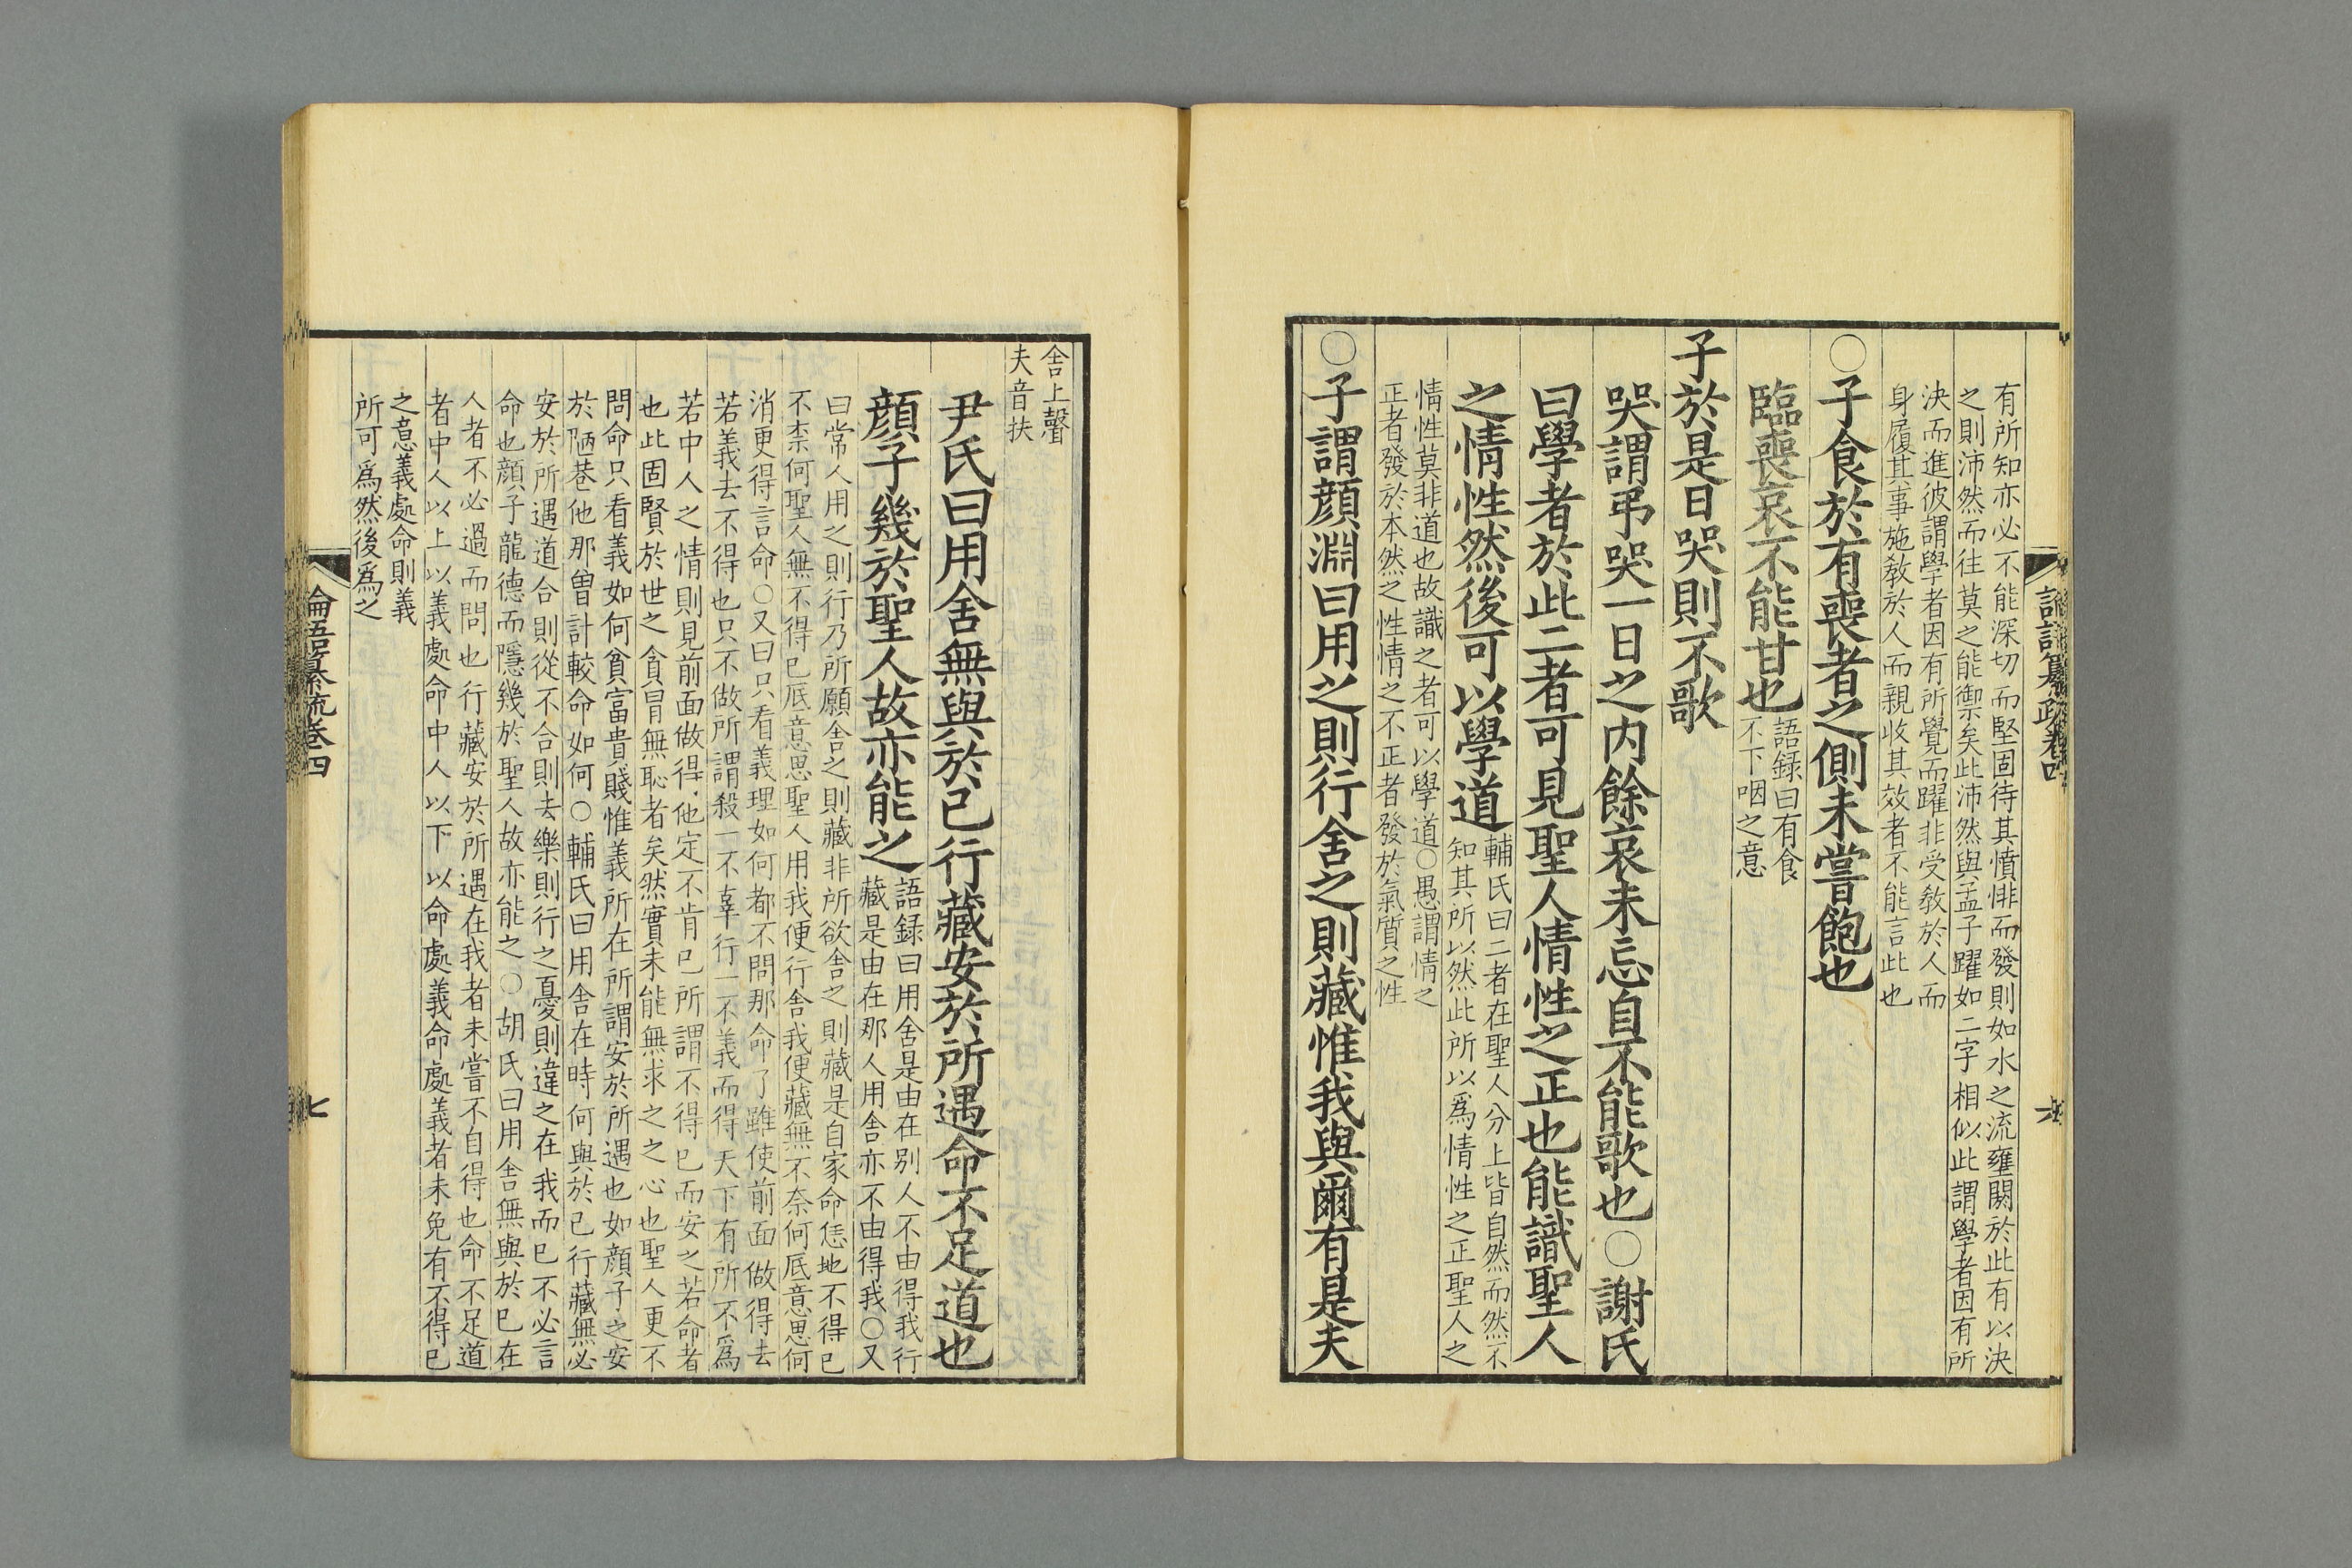 論語纂疏卷四
有所知亦必不能深切而堅固待其憤悱而發則如水之流壅閼於此有以決
之則沛然而往莫之能禦矣此沛然與孟子躍如二字相似此謂學者因有所
決而進彼謂學者因有所覺而躍非受教於人而
身履其事施教於人而親收其效者不能言此也
○子食於有喪者之側未嘗飽也
臨喪哀不能甘也
語錄曰有食
不下咽之意
子於是日哭則不歌
哭謂弔哭一日之內餘哀未忘自不能歌也○謝氏
曰學者於此二者可見聖人情性之正也能識聖人
之情性然後可以學道
輔氏曰二者在聖人分上皆自然而然不
知其所以然此所以爲情性之正聖人之
情性莫非道也故識之者可以學道○愚謂情之
正者發於本然之性情之不正者發於氣質之性
○子謂顔淵曰用之則行舍之則藏惟我與爾有是夫
舍上聲
夫音扶
尹氏曰用舍無與於己行藏安於所遇命不足道也
顔子幾於聖人故亦能之
語錄曰用舍是由在別人不由得我行
藏是由在那人用舍亦不由得我○又
曰常人用之則行乃所願舍之則藏非所欲舍之則藏是自家命恁地不得已
不柰何聖人無不得已底意思聖人用我便行舍我便藏無不奈何底意思何
消更得言命○又曰只看義理如何都不問那命了雖使前面做得去
若義去不得也只不做所謂殺一不辜行一不義而得天下有所不爲
若中人之情則見前面做得他定不肯已所謂不得已而安之若命者
也此固賢於世之貪冒無恥者矣然實未能無求之之心也聖人更不
問命只看義如何貧富貴賤惟義所在所謂安於所遇也如顔子之安
於陋巷他那曾計較命如何○輔氏曰用舍在時何與於己行藏無必
安於所遇道合則從不合則去樂則行之憂則違之在我而已不必言
命也顔子龍德而隱幾於聖人故亦能之○胡氏曰用舍無與於己在
人者不必過而問也行藏安於所遇在我者未嘗不自得也命不足道
者中人以上以義處命中人以下以命處義命處義者未免有不得已
之意義處命則義
所可爲然後爲之
論語纂疏卷四
七